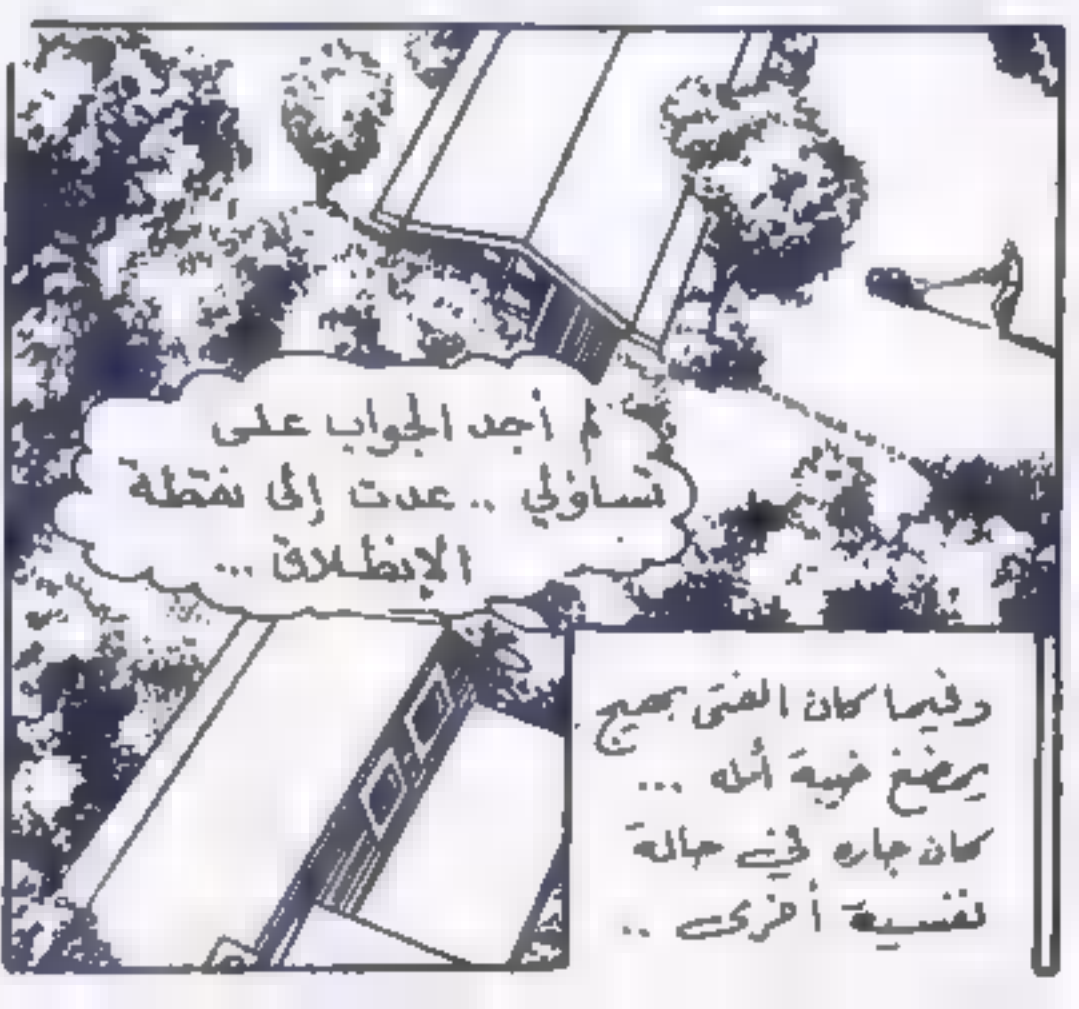 لم أجد الجواب على
تساؤلي .. عدت إلى نقطة
الإنطلاق ...
وفيما كان الفتى بهيج
يمضغ خيبة أمله ...
كان جاره في حالة
نفسية أخرى ..